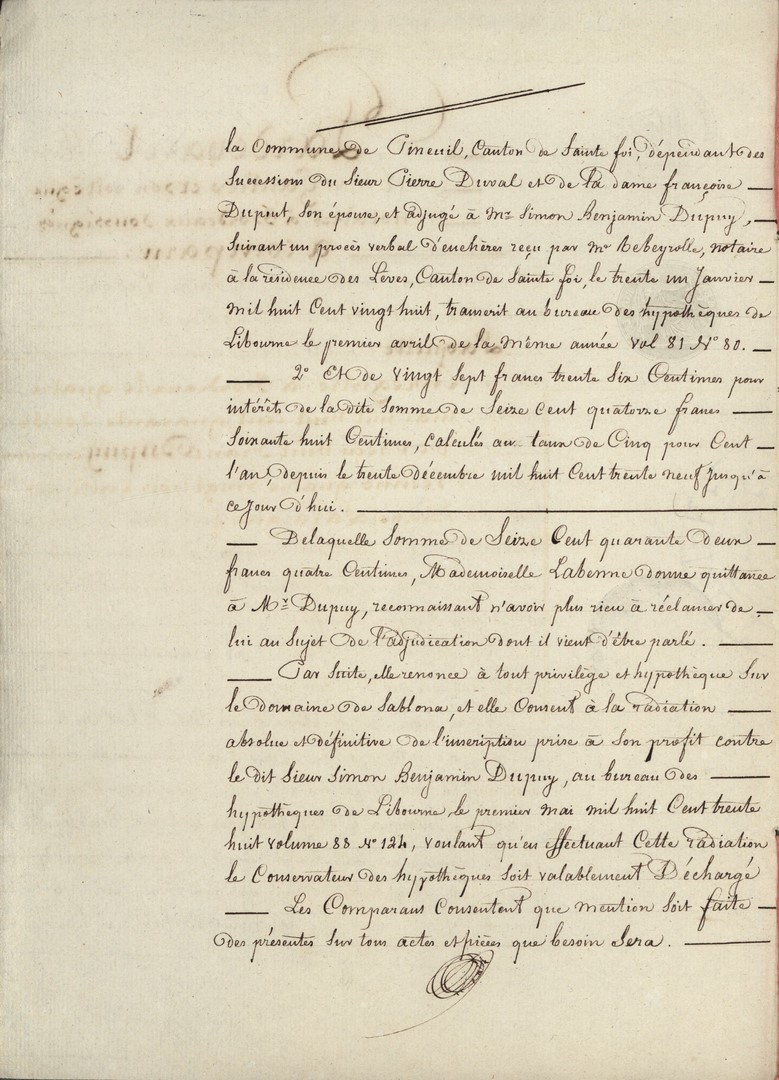 la Commune de Pineuil, Canton de Sainte foi, dépendant des
Successions du Sieur Pierre Duval et de la dame françoise
Dupout, son épouse, et adjugé à Mr. Simon Benjamin Dupuy,
suivant un procès verbal d'enchères reçu par Me Rebeyrolle, notaire
à la résidence des Lèves, Canton de Sainte foi, le trente un Janvier
mil huit Cent vingt huit, transcrit au bureau des hypothèques de
Libourne le premier avril de la même année vol 81 N° 80.
2° Et de vingt sept francs trente six Centimes pour
intérêts de la dite somme de Seize cent quatorze francs
soixante huit Centimes, calculés au taux de Cinq pour Cent
l'an, depuis le trente décembre mil huit Cent trente neuf jusqu'à
ce Jour d'hui.
De laquelle Somme de Seize Cent quarante deux
francs quatre Centimes, Mademoiselle Labenne donne quittance
à Mr Dupuy, reconnaissant n'avoir plus rien à réclamer de
lui au Sujet de l'adjudication dont il vient d'être parlé.
Par Suite, elle renonce à tout privilège et hypothèque Sur
le domaine de Sablona, et elle Consent à la radiation
absolue et définitive de l'inscription prise à Son profit contre
le dit Sieur Simon Benjamin Dupuy, au bureau des
hypothèques de Libourne le premier mai mil huit Cent trente
huit volume 88 N° 124, voulant qu'en effectuant Cette radiation
le Conservateur des hypothèques soit valablement Déchargé
Les Comparans Consentent que mention soit faite
des présentes Sur tous actes et pièces que besoin Sera.